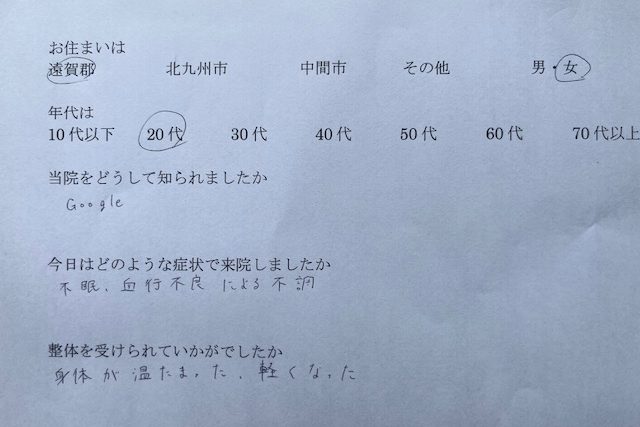 お住まいは
遠賀郡 北九州市 中間市 その他 男・女
年代は
10代以下 20代 30代 40代 50代 60代 70代以上
当院をどうして知られましたか
Google
今日はどのような症状で来院しましたか
不眠、血行不良による不調
整体を受けられていかがでしたか
身体が温たまった、軽くなった